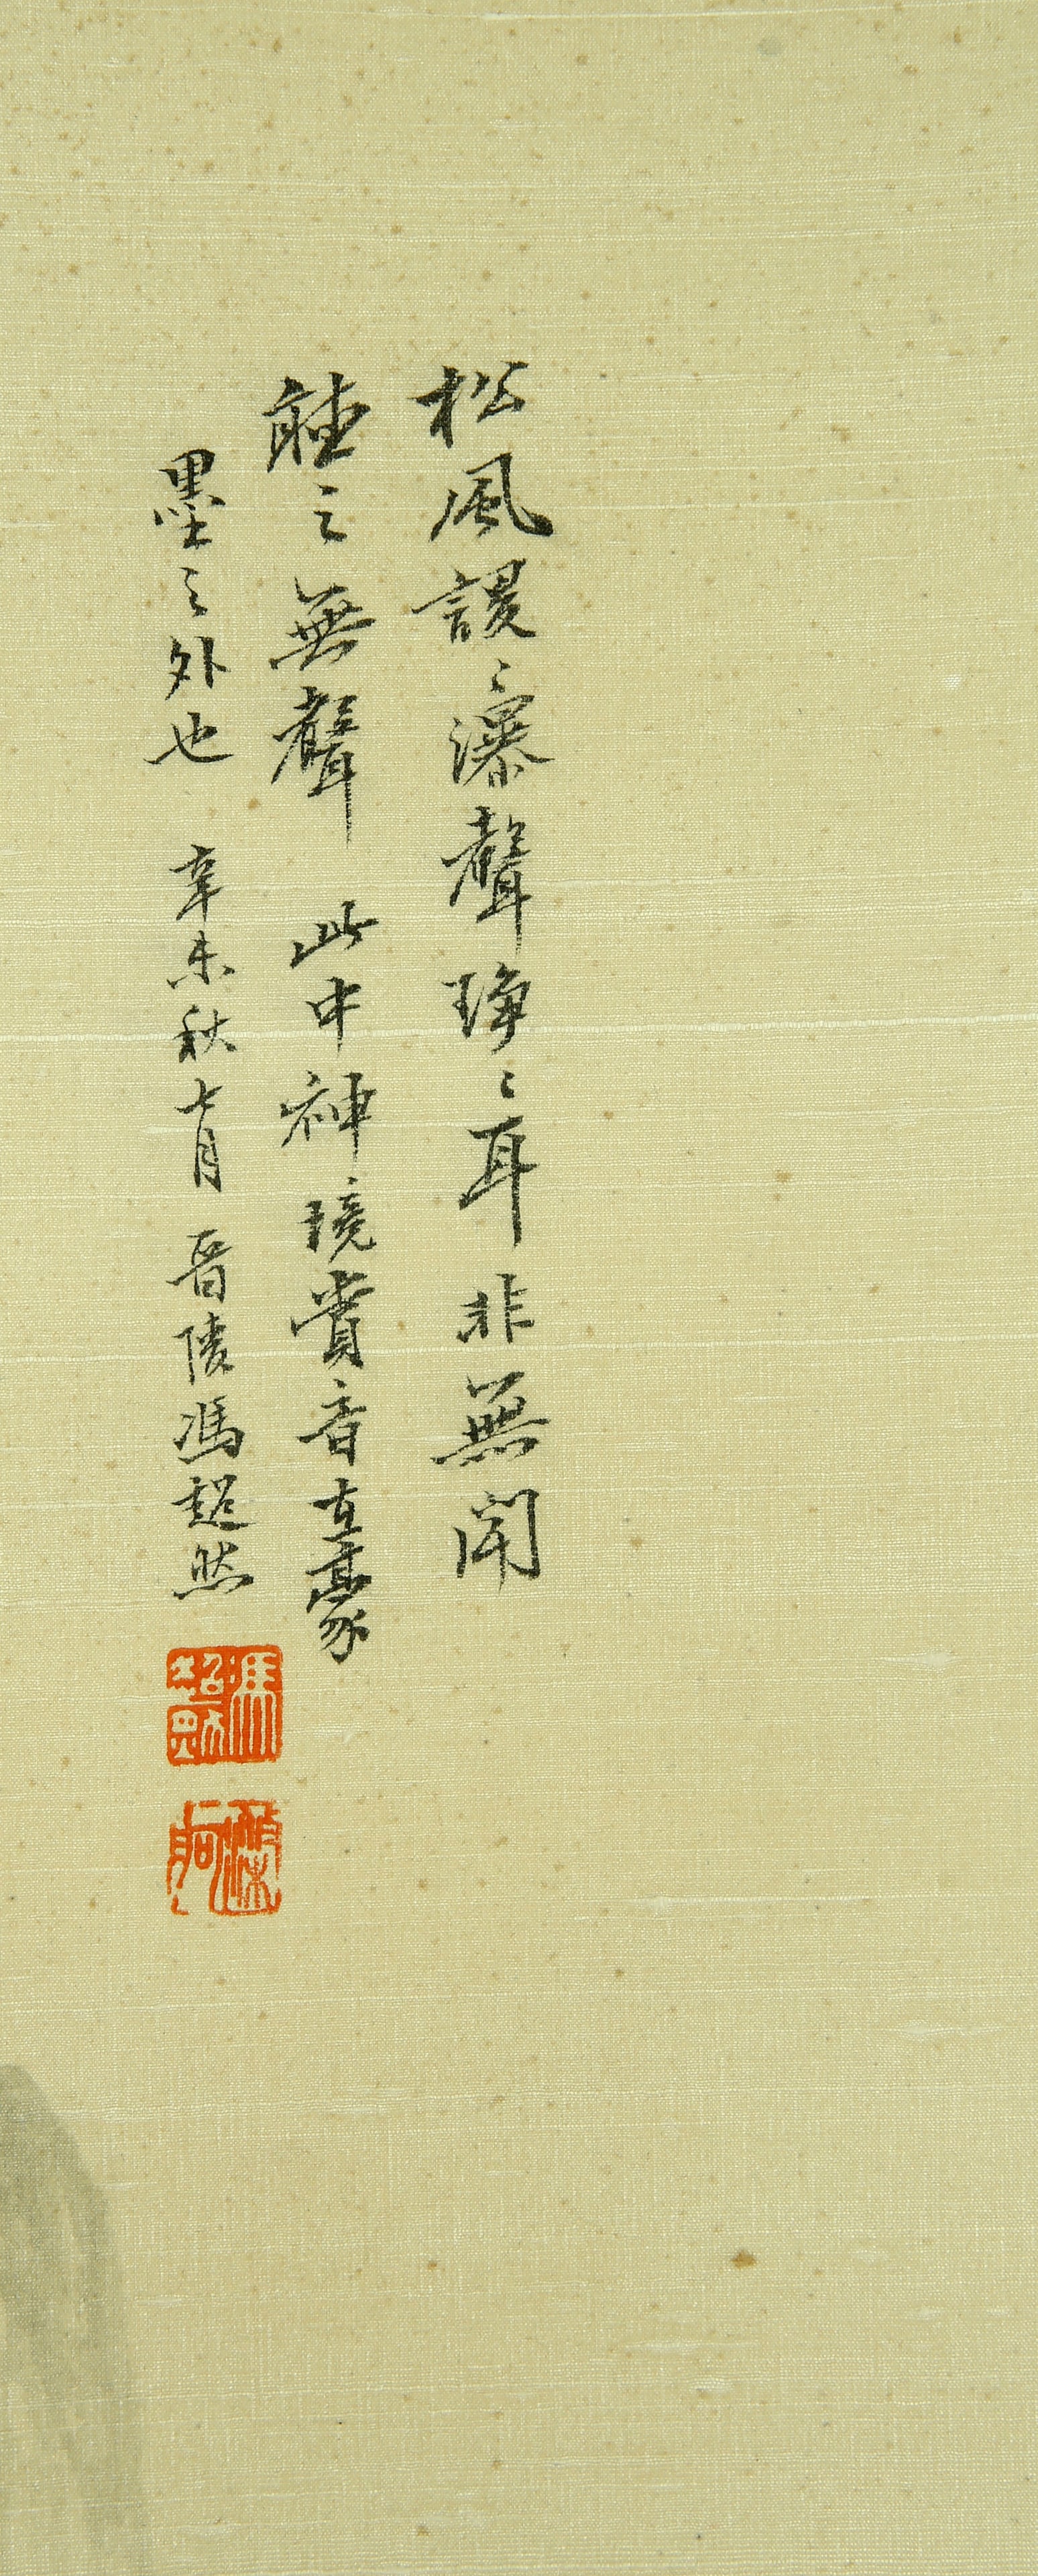 松風謖〻瀑聲琤〻耳非無聞
聽之無聲此中神境賞音在豪
墨之外也辛未秋七月晉陵馮超然
馮超然
滌舸